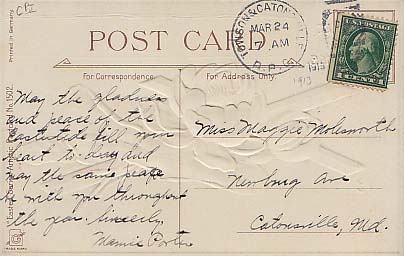 CPI
POST CARD
TOWSON & CATONSVILLE
MAR 24
7 AM
R.P.O.
1913
1913
U.S. POSTAGE
1 CENT 1
For Correspondence.
For Address Only.
Printed in Germany.
Easter Series No. 1502.
May the gladness
and peace of the
Eastertide fill your
heart to-day and
may the same peace
be with you throughout
the year. Sincerely,
Mamie Porter
Miss Maggie Molesworth
Newburg Ave
Catonsville, Md.